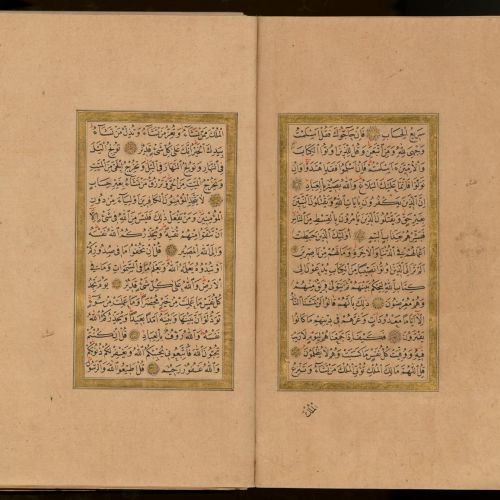 سريع الحساب فان حاجوك فقل اسلمت
وجهي لله ومن اتبعن وقل للذين اوتوا الكتاب
والاميين ءاسلمتم فان اسلموا فقد اهتدوا وان
تولوا فانما عليك البلاغ والله بصير بالعباد ان
الذين يكفرون بايات الله ويقتلون النبيين
بغير حق ويقتلون الذين يامرون بالقسط من الناس
فبشرهم بعذاب اليم اولئك الذين حبطت
اعمالهم في الدنيا والاخرة وما لهم من ناصرين
الم تر الى الذين اوتوا نصيبا من الكتاب يدعون الى
كتاب الله ليحكم بينهم ثم يتولى فريق منهم
وهم معرضون ذلك بانهم قالوا لن تمسنا النار
الا اياما معدودات وغرهم في دينهم ما كانوا
يفترون فكيف اذا جمعناهم ليوم لا ريب
فيه ووفيت كل نفس ما كسبت وهم لا يظلمون
قل اللهم مالك الملك تؤتي الملك من تشاء وتنزع
الملك
الملك ممن تشاء وتعز من تشاء وتذل من تشاء
بيدك الخير انك على كل شيء قدير تولج الليل
في النهار وتولج النهار في الليل وتخرج الحي من الميت
وتخرج الميت من الحي وترزق من تشاء بغير حساب
لا يتخذ المؤمنون الكافرين اولياء من دون
المؤمنين ومن يفعل ذلك فليس من الله في شيء الا
ان تتقوا منهم تقية ويحذركم الله نفسه
والى الله المصير قل ان تخفوا ما في صدوركم
او تبدوه يعلمه الله ويعلم ما في السموات وما في
الارض والله على كل شيء قدير يوم تجد
كل نفس ما عملت من خير محضرا وما عملت من سوء
تود لو ان بينها وبينه امدا بعيدا ويحذركم الله
نفسه والله رؤف بالعباد قل ان كنتم
تحبون الله فاتبعوني يحببكم الله ويغفر لكم ذنوبكم
والله غفور رحيم قل اطيعوا الله والرسول